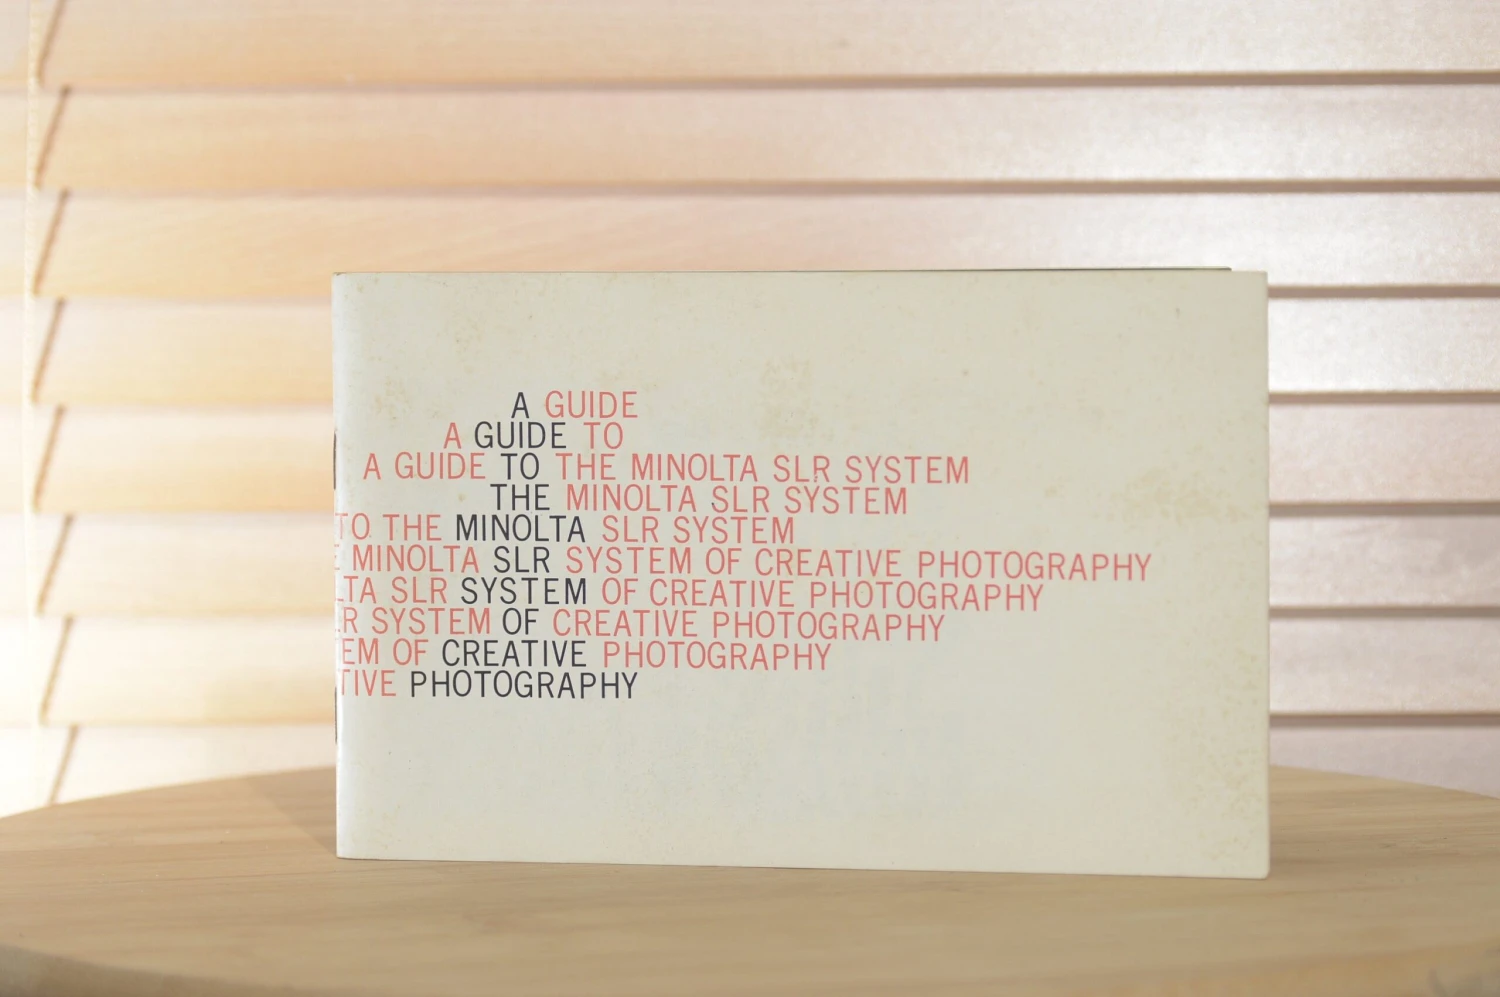 A GUIDE
A GUIDE TO
A GUIDE TO THE MINOLTA SLR SYSTEM
THE MINOLTA SLR SYSTEM
TO THE MINOLTA SLR SYSTEM
E MINOLTA SLR SYSTEM OF CREATIVE PHOTOGRAPHY
LTA SLR SYSTEM OF CREATIVE PHOTOGRAPHY
LR SYSTEM OF CREATIVE PHOTOGRAPHY
EM OF CREATIVE PHOTOGRAPHY
TIVE PHOTOGRAPHY